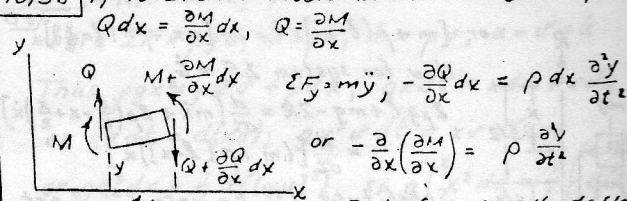 Q dx = ∂M/∂x dx, Q = ∂M/∂x
y
Q
M + ∂M/∂x dx
ΣF_y = mÿ; - ∂Q/∂x dx = ρ dx ∂²y/∂t²
M
y
Q + ∂Q/∂x dx
or - ∂/∂x (∂M/∂x) = ρ ∂²y/∂t²
x